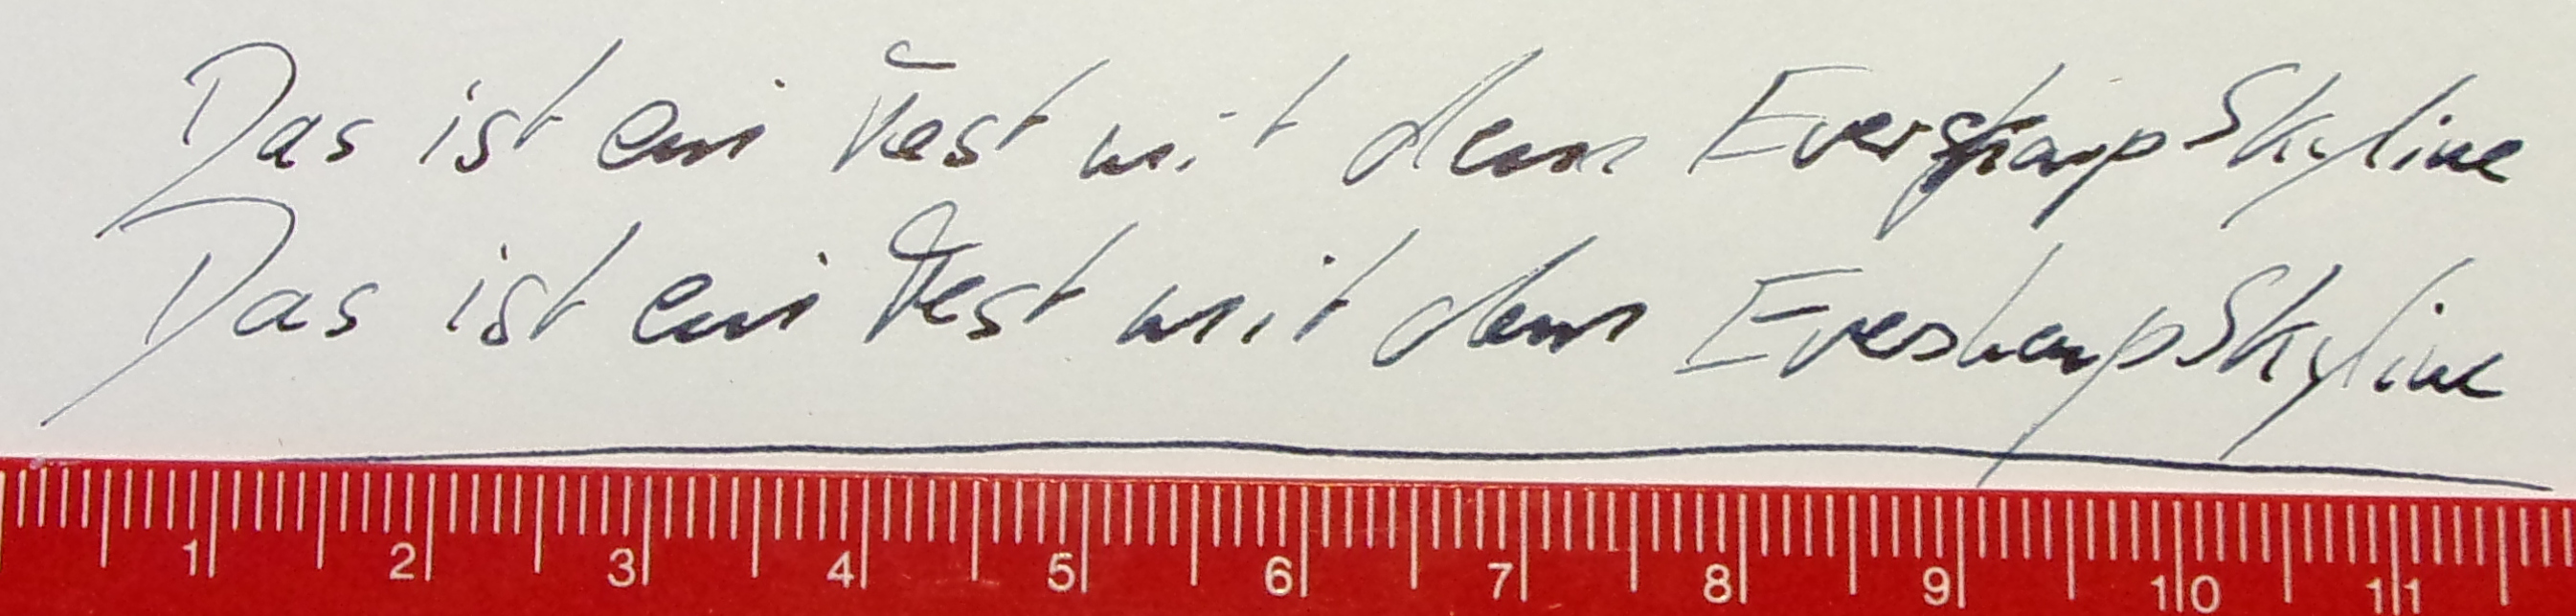 Das ist ein Test mit dem Eversharp Skyline
Das ist ein Test mit dem Eversharp Skyline
1 2 3 4 5 6 7 8 9 10 11